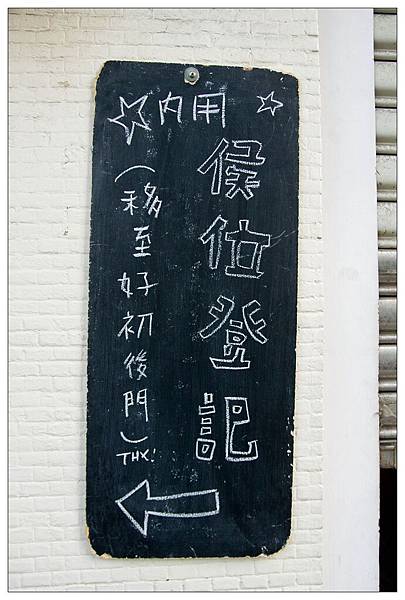 ☆內用☆
侯位登記
(移至好初後門)THX!